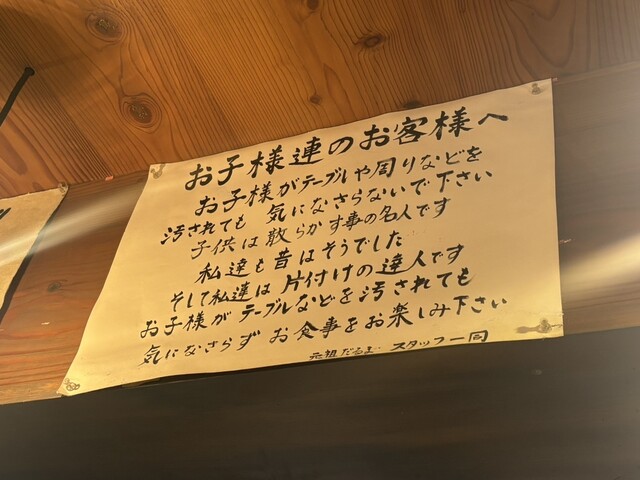 お子様連のお客様へ
お子様がテーブルや周りなどを
汚されても 気になさらないで下さい
子供は散らかす事の名人です
私達も昔はそうでした
そして私達は片付けの達人です
お子様がテーブルなどを汚されても
気になさらず お食事をお楽しみ下さい
元祖だるま スタッフ一同